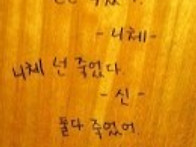 - 니체 -
니체 넌 죽었다.
- 신 -
둘다 죽었어